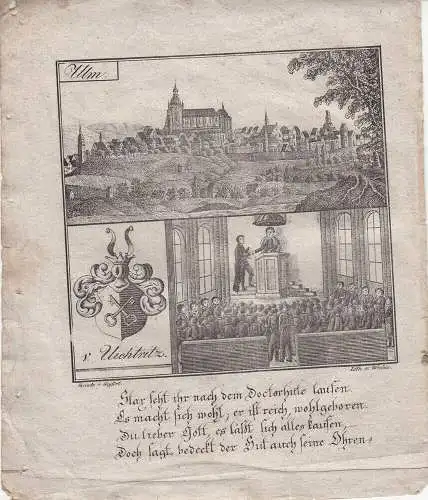 Ulm.
v. Uechtritz.
Lith. v.
Star seht ihr nach dem Doctorhutte laufen
Es macht sich wohl, er ist reich, wohlgeboren.
Du lieber Gott, es läßt sich alles kaufen,
Doch sagt, bedeckt der Hut auch seine Ohren.